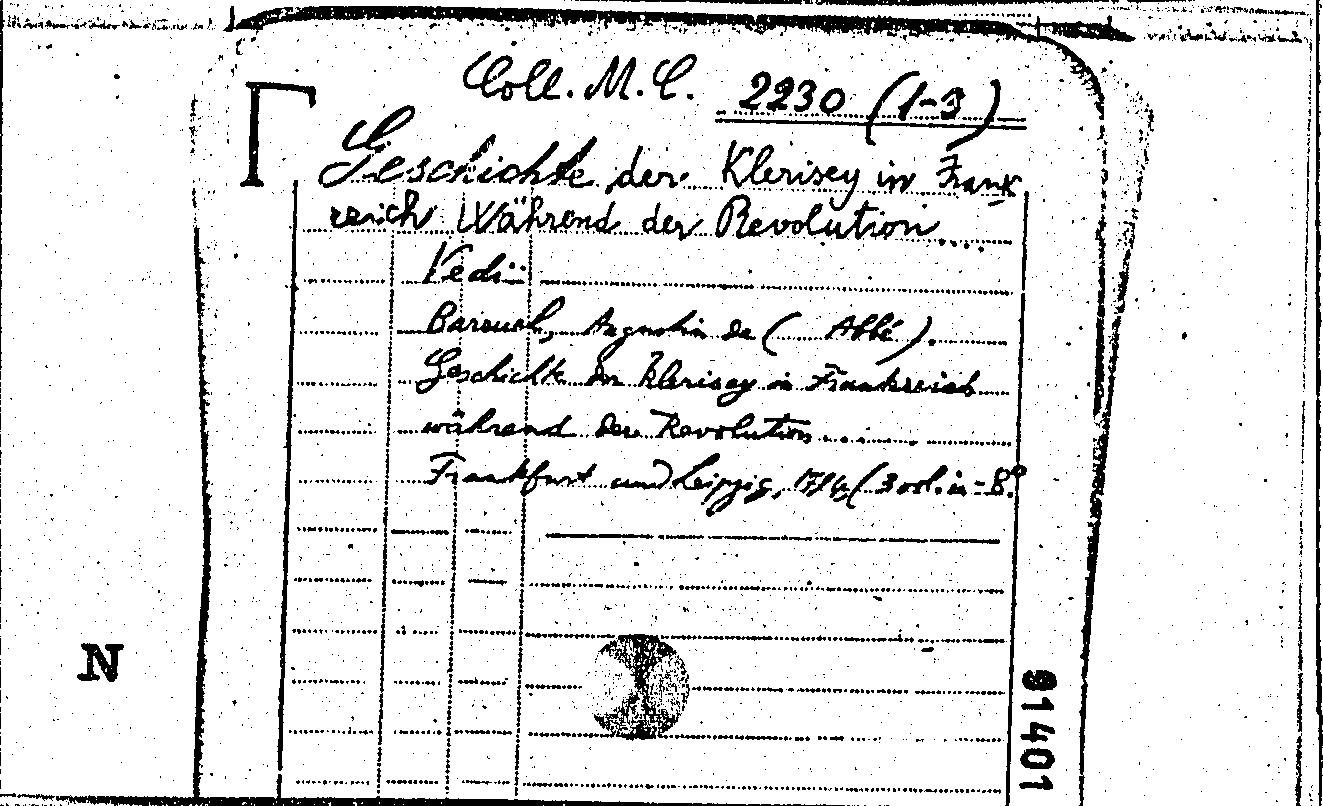 Coll. M. C. 2230 (1-3)
Geschichte der Klerisey in Frank
reich Während der Revolution....
Vedi:
Barruel, Augustin de ( Abbé ).
Geschichte der Klerisey in Frankreich
während der Revolution....
Frankfurt und Leipzig, (3 vol. in-8º
N
91401